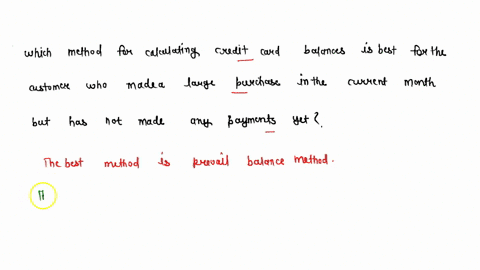 which method for calculating credit card balances is best for the
customer who made a large purchase in the current month
but has not made any payments yet?.
The best method is prevail balance method.